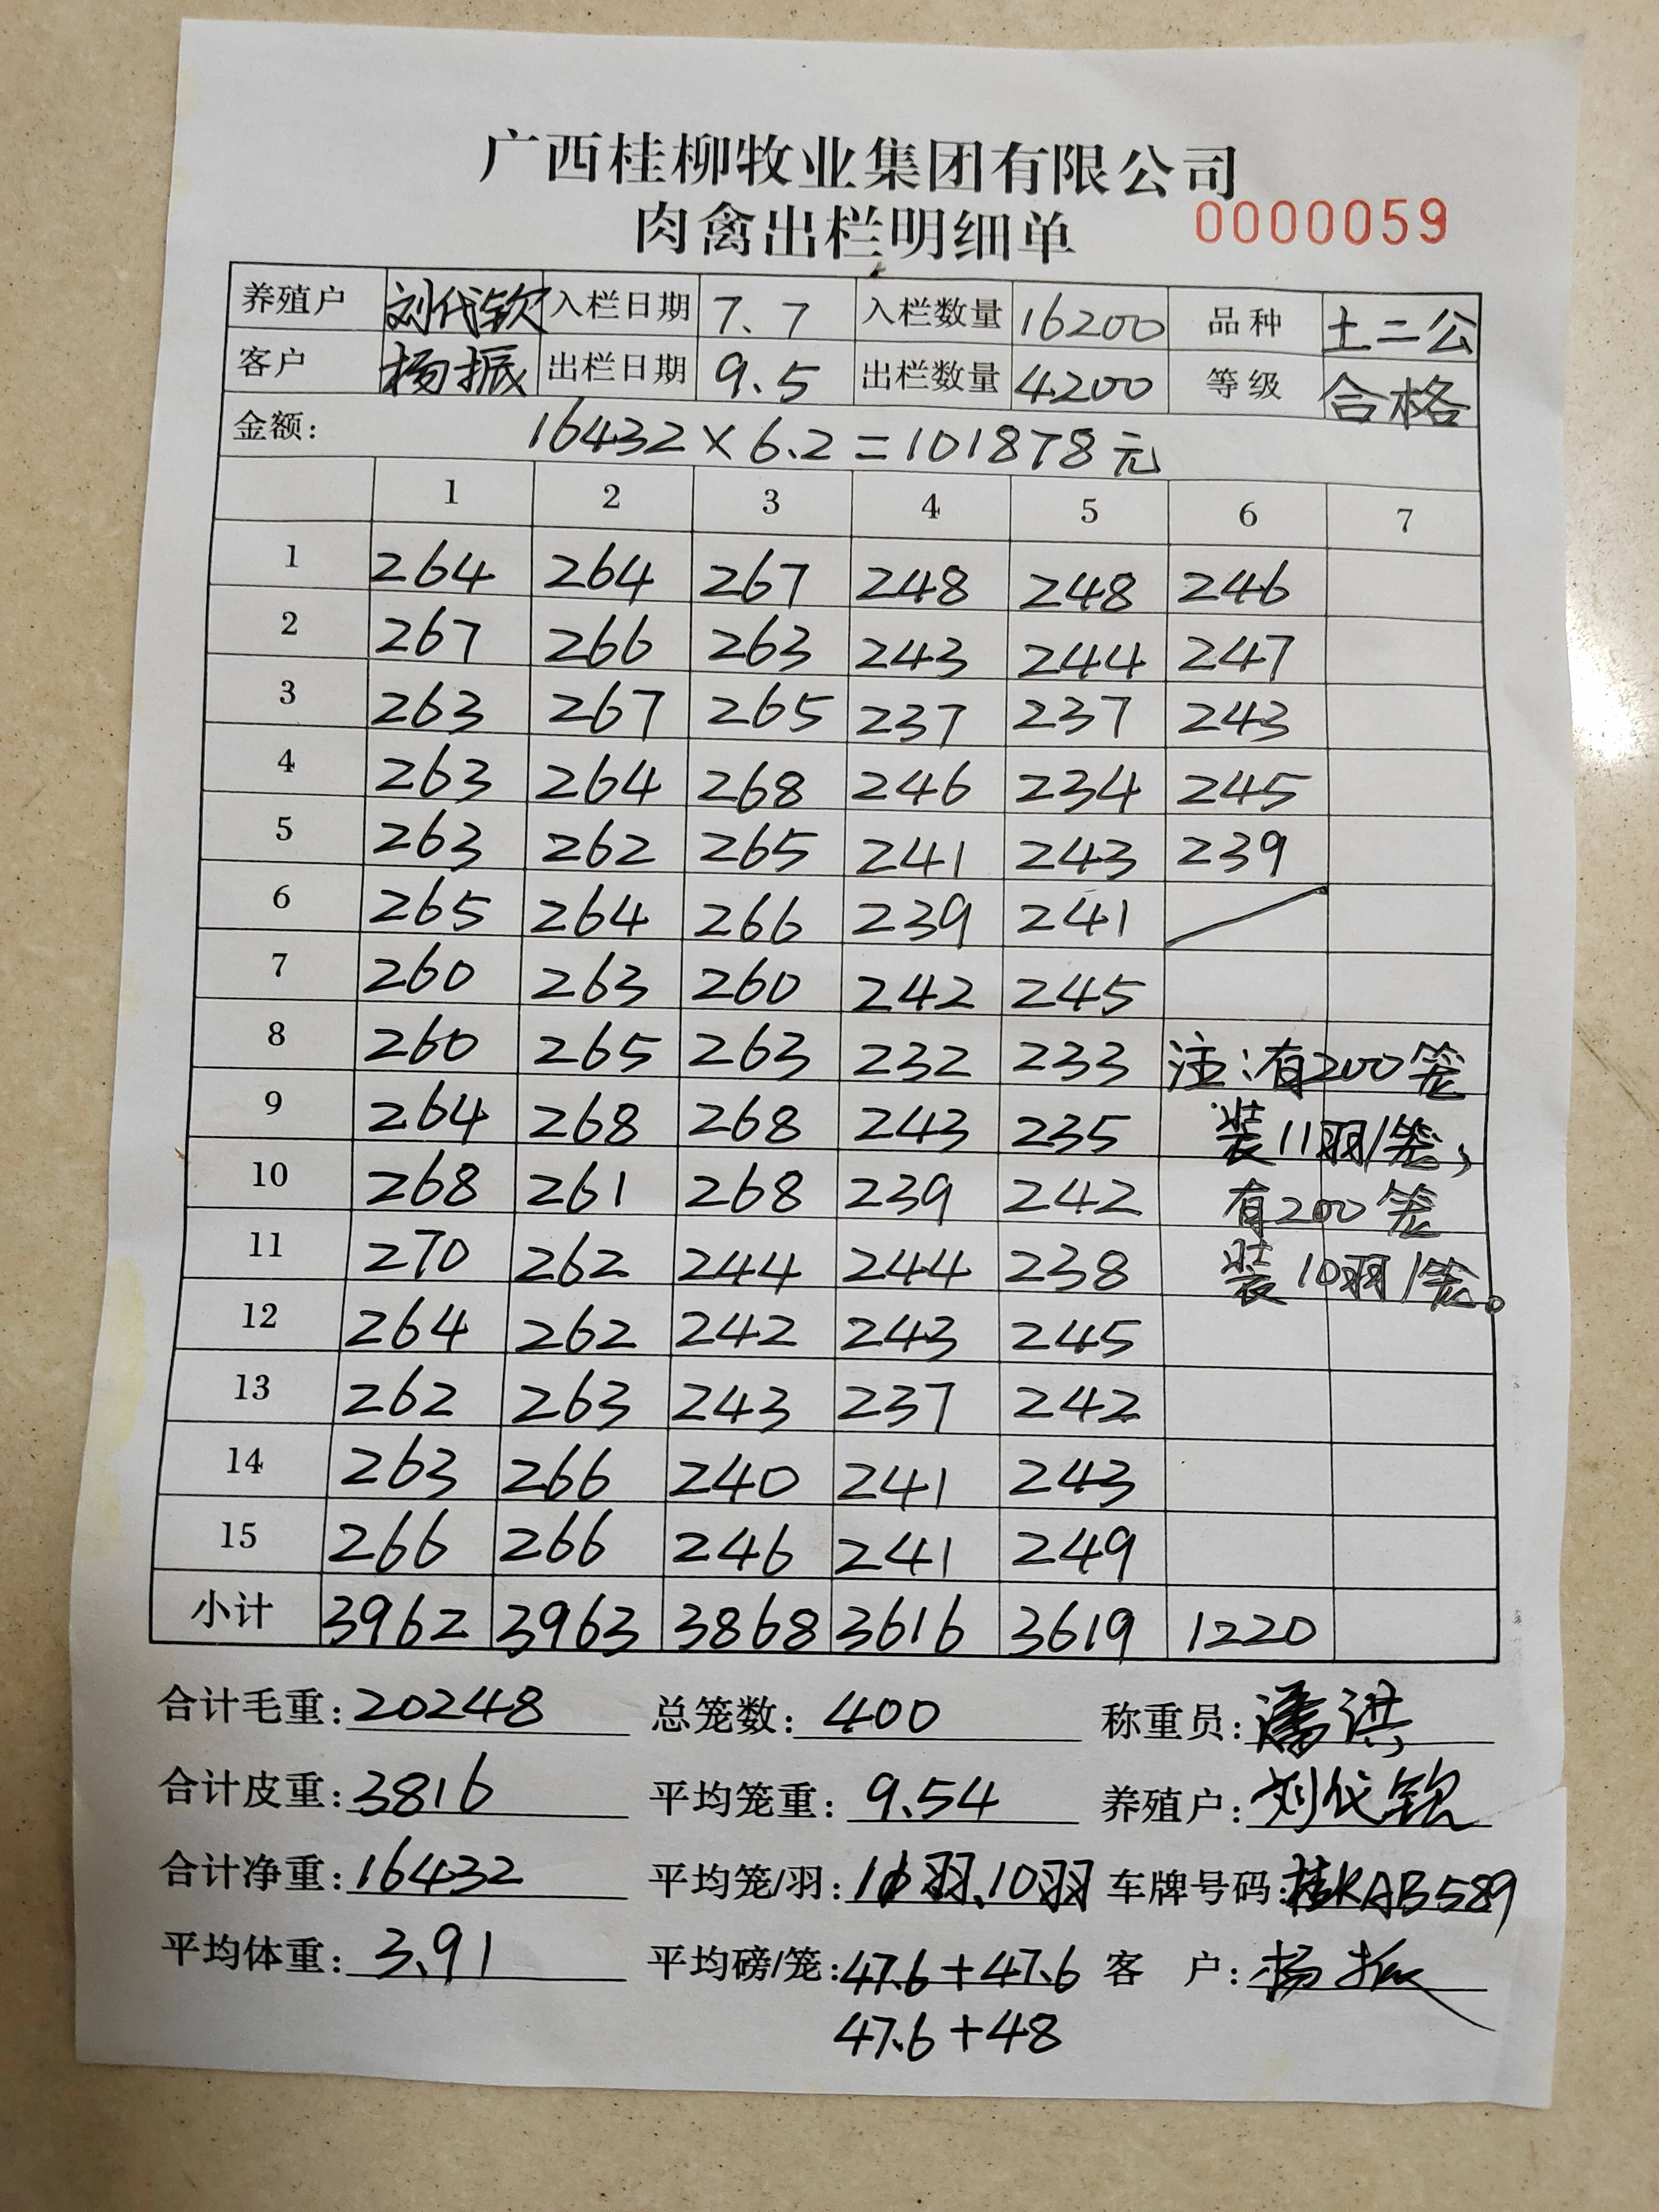 广西桂柳牧业集团有限公司
肉禽出栏明细单 0000059
养殖户 刘代钦 入栏日期 7.7 入栏数量 16200 品种 土二公
客户 杨振 出栏日期 9.5 出栏数量 4200 等级 合格
金额: 16432×6.2=101878元
1 2 3 4 5 6 7
1 264 264 267 248 248 246
2 267 266 263 243 244 247
3 263 267 265 237 237 243
4 263 264 268 246 234 245
5 263 262 265 241 243 239
6 265 264 266 239 241
7 260 263 260 242 245
8 260 265 263 232 233 注:有200笼
9 264 268 268 243 235 装11羽/笼,
10 268 261 268 239 242 有200笼
11 270 262 244 244 238 装10羽/笼。
12 264 262 242 243 245
13 262 263 243 237 242
14 263 266 240 241 243
15 266 266 246 241 249
小计 3962 3963 3868 3616 3619 1220
合计毛重:20248 总笼数:400 称重员:潘洪
合计皮重:3816 平均笼重:9.54 养殖户:刘代钦
合计净重:16432 平均笼/羽:11羽、10羽 车牌号码:桂KAB589
平均体重:3.91 平均磅/笼:47.6+47.6 客户:杨振
47.6+48